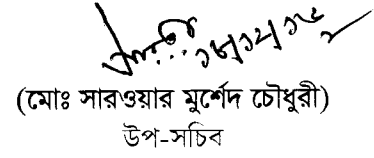 (মোঃ সারওয়ার মুর্শেদ চৌধুরী)
উপ-সচিব